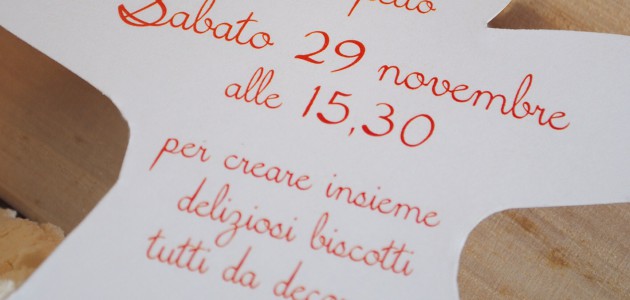 Sabato 29 novembre
alle 15,30
per creare insieme
deliziosi biscotti
tutti da